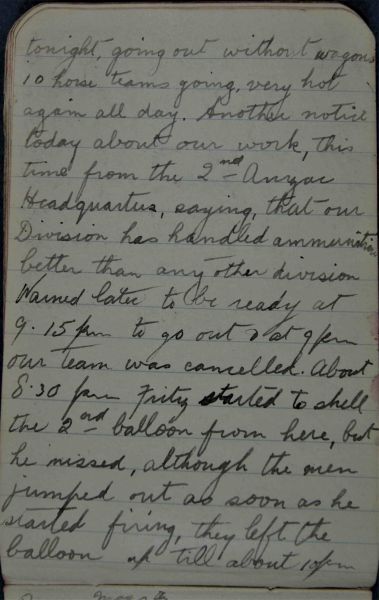 tonight, going out without wagons
10 horse teams going, very hot
again all day. Another notice
today about our work, this
time from the 2nd Anzac
Headquarters, saying, that our
Division has handled ammunition
better than any other division
Warned later to be ready at
9.15 pm to go out & at 9 pm
our team was cancelled. About
8.30 pm Fritz started to shell
the 2nd balloon from here, but
he missed, although the men
jumped out as soon as he
started firing, they left the
balloon up till about 10 pm